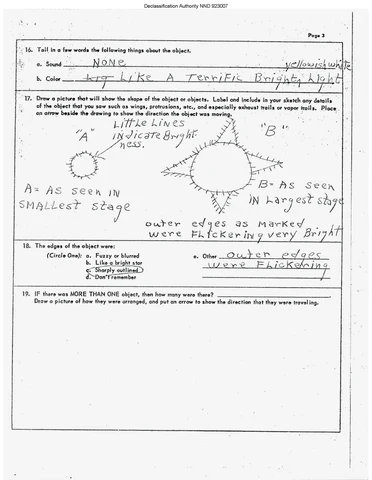 Declassification Authority NND 923007
Page 3
16. Tell in a few words the following things about the object.
a. Sound NONE
yellowish white
b. Color Like A Terrific Bright, Light
17. Draw a picture that will show the shape of the object or objects. Label and include in your sketch any details
of the object that you saw such as wings, protrusions, etc., and especially exhaust trails or vapor trails. Place
an arrow beside the drawing to show the direction the object was moving.
Little Lines
"A" INdicate Bright
ness.
"B"
A = As seen IN
SMALLest stage
B = As seen
IN Largest stage
outer edges as Marked
were FLickering very Bright
18. The edges of the object were:
(Circle One): a. Fuzzy or blurred
b. Like a bright star
c. Sharply outlined
d. Don't remember
e. Other outer edges
were FLickering
19. IF there was MORE THAN ONE object, then how many were there?
Draw a picture of how they were arranged, and put an arrow to show the direction that they were traveling.